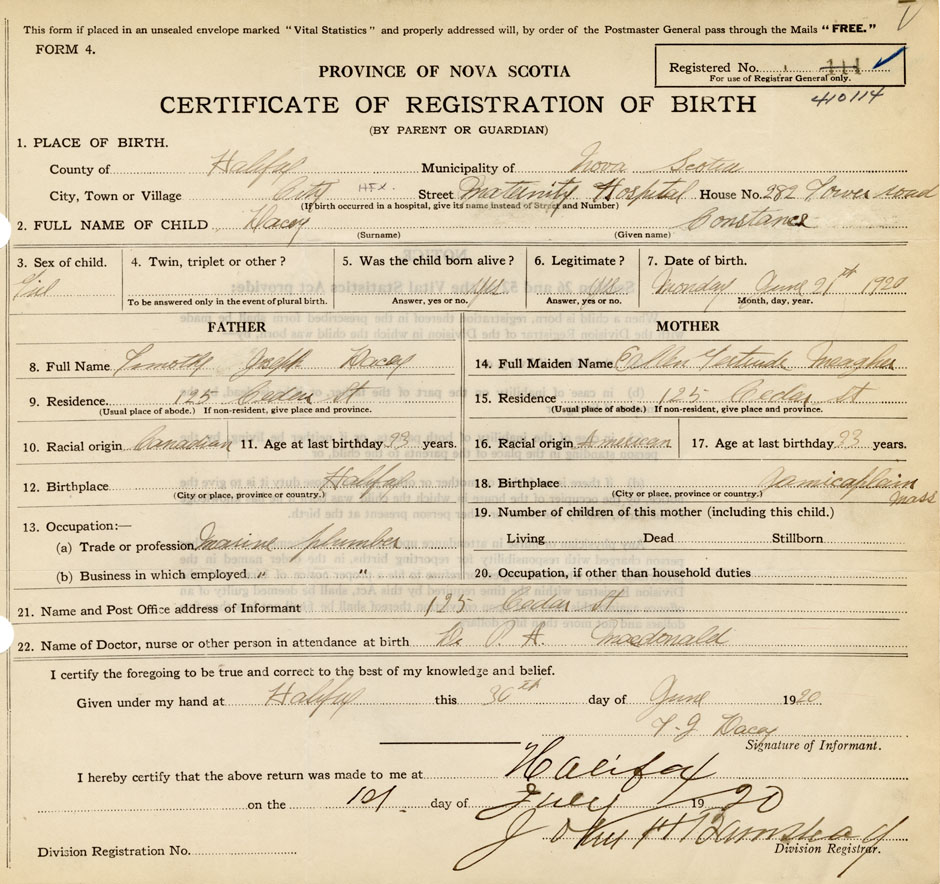 This form if placed in an unsealed envelope marked "Vital Statistics" and properly addressed will, by order of the Postmaster General pass through the Mails "FREE."
FORM 4.
Registered No.
For use of Registrar General only.
410114
PROVINCE OF NOVA SCOTIA
CERTIFICATE OF REGISTRATION OF BIRTH
(BY PARENT OR GUARDIAN)
1. PLACE OF BIRTH.
County of Halifax Municipality of Nova Scotia
City, Town or Village City HFX. Street Maternity Hospital House No. 282 Tower Road
(If birth occurred in a hospital, give its name instead of Street and Number)
2. FULL NAME OF CHILD Dacey Constance
(Surname) (Given name)
3. Sex of child. 4. Twin, triplet or other? 5. Was the child born alive? 6. Legitimate? 7. Date of birth.
Girl yes yes Monday June 21st 1920
To be answered only in the event of plural birth. Answer, yes or no. Answer, yes or no. Month, day, year.
FATHER MOTHER
8. Full Name Timothy Joseph Dacey 14. Full Maiden Name Ellen Gertrude Meagher
9. Residence. 125 Cedar St 15. Residence 125 Cedar St
(Usual place of abode.) If non-resident, give place and province. (Usual place of abode.) If non-resident, give place and province.
10. Racial origin Canadian 11. Age at last birthday years. 16. Racial origin American 17. Age at last birthday years.
12. Birthplace Halifax 18. Birthplace Jamicaplain Mass
(City or place, province or country.) (City or place, province or country.)
13. Occupation:— 19. Number of children of this mother (including this child.)
(a) Trade or profession, Marine plumber Living Dead Stillborn
(b) Business in which employed " " 20. Occupation, if other than household duties
21. Name and Post Office address of Informant 125 Cedar St
22. Name of Doctor, nurse or other person in attendance at birth Dr. Macdonald
I certify the foregoing to be true and correct to the best of my knowledge and belief.
Given under my hand at Halifax this 30th day of June 1920
T. J. Dacey
Signature of Informant.
I hereby certify that the above return was made to me at Halifax
on the day of July 1920
John H Barnstead
Division Registration No. Division Registrar.